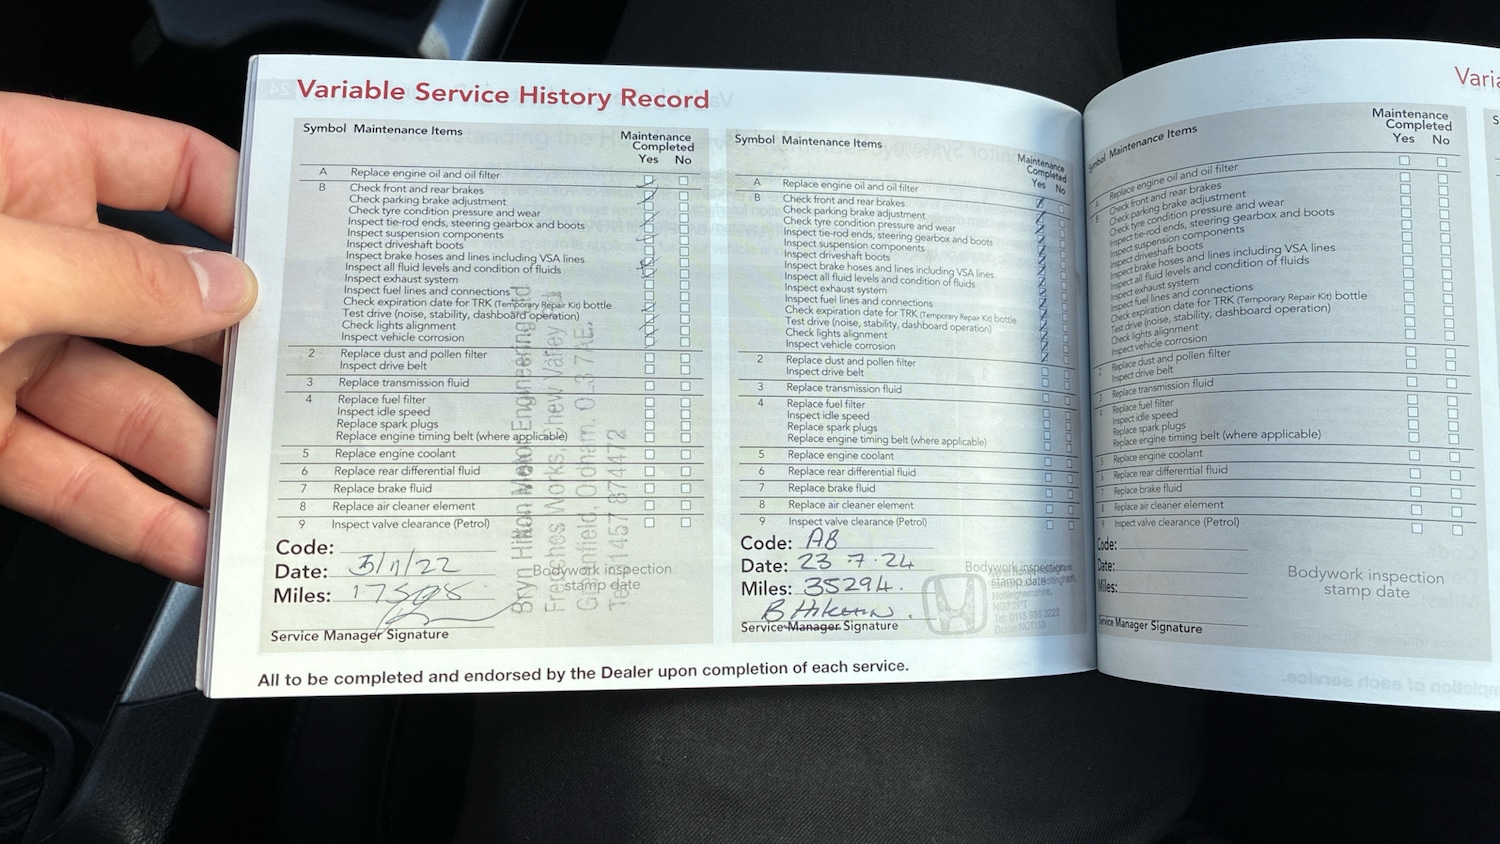 Variable Service History Record
Symbol Maintenance Items
Maintenance
Completed
Yes No
A Replace engine oil and oil filter
B Check front and rear brakes
Check parking brake adjustment
Check tyre condition pressure and wear
Inspect tie-rod ends, steering gearbox and boots
Inspect suspension components
Inspect driveshaft boots
Inspect brake hoses and lines including VSA lines
Inspect all fluid levels and condition of fluids
Inspect exhaust system
Inspect fuel lines and connections
Check expiration date for TRK (Temporary Repair Kit) bottle
Test drive (noise, stability, dashboard operation)
Check lights alignment
Inspect vehicle corrosion
2 Replace dust and pollen filter
Inspect drive belt
3 Replace transmission fluid
4 Replace fuel filter
Inspect idle speed
Replace spark plugs
Replace engine timing belt (where applicable)
5 Replace engine coolant
6 Replace rear differential fluid
7 Replace brake fluid
8 Replace air cleaner element
9 Inspect valve clearance (Petrol)
Code:
Date: 3/11/22
Miles:
Bodywork inspection
stamp date
Service Manager Signature
Bryn Hilton Motor Engineering Ltd
Frenches Works, Chew Valley
Greenfield, Oldham. OL3 7AE.
Tel: 01457 874472
Symbol Maintenance Items
Maintenance
Completed
Yes No
A Replace engine oil and oil filter
B Check front and rear brakes
Check parking brake adjustment
Check tyre condition pressure and wear
Inspect tie-rod ends, steering gearbox and boots
Inspect suspension components
Inspect driveshaft boots
Inspect brake hoses and lines including VSA lines
Inspect all fluid levels and condition of fluids
Inspect exhaust system
Inspect fuel lines and connections
Check expiration date for TRK (Temporary Repair Kit) bottle
Test drive (noise, stability, dashboard operation)
Check lights alignment
Inspect vehicle corrosion
2 Replace dust and pollen filter
Inspect drive belt
3 Replace transmission fluid
4 Replace fuel filter
Inspect idle speed
Replace spark plugs
Replace engine timing belt (where applicable)
5 Replace engine coolant
6 Replace rear differential fluid
7 Replace brake fluid
8 Replace air cleaner element
9 Inspect valve clearance (Petrol)
Code: AB
Date: 23.7.24
Miles: 35294.
Bodywork inspection
stamp date
Service Manager Signature
All to be completed and endorsed by the Dealer upon completion of each service.
Symbol Maintenance Items
Maintenance
Completed
Yes No
A Replace engine oil and oil filter
B Check front and rear brakes
Check parking brake adjustment
Check tyre condition pressure and wear
Inspect tie-rod ends, steering gearbox and boots
Inspect suspension components
Inspect driveshaft boots
Inspect brake hoses and lines including VSA lines
Inspect all fluid levels and condition of fluids
Inspect exhaust system
Inspect fuel lines and connections
Check expiration date for TRK (Temporary Repair Kit) bottle
Test drive (noise, stability, dashboard operation)
Check lights alignment
Inspect vehicle corrosion
2 Replace dust and pollen filter
Inspect drive belt
3 Replace transmission fluid
4 Replace fuel filter
Inspect idle speed
Replace spark plugs
Replace engine timing belt (where applicable)
5 Replace engine coolant
6 Replace rear differential fluid
7 Replace brake fluid
8 Replace air cleaner element
9 Inspect valve clearance (Petrol)
Code:
Date:
Miles:
Bodywork inspection
stamp date
Service Manager Signature